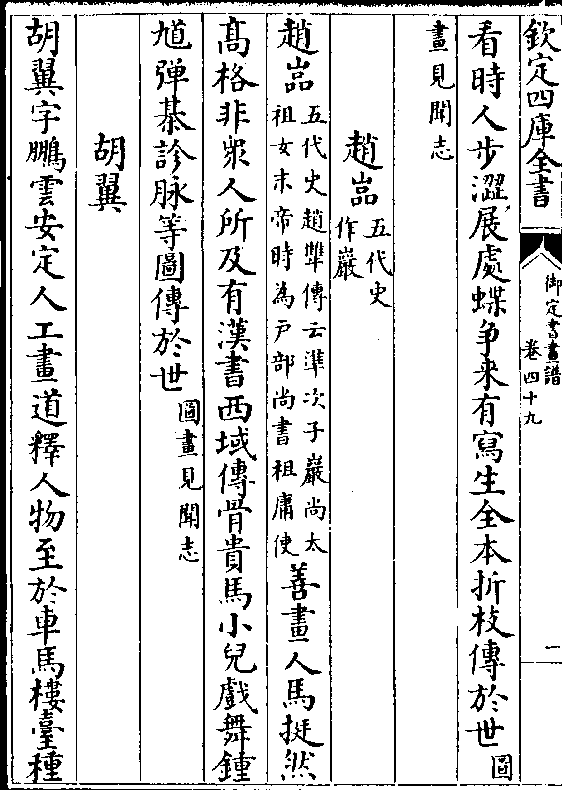 欽定四庫全書
御定書畫譜
卷四十九
一
看時人步澀展處蝶爭來有寫生全本折枝傳於世圖
畫見聞志
趙嵒五代史
作巖
趙嵒五代史趙犨傳云準次子巖尚太
祖女末帝時為戶部尚書祖庸使善畫人馬挺然
髙格非衆人所及有漢書西域傳骨貴馬小兒戲舞鍾
馗弾棊診脉等圖傳於世圖畫見聞志
胡翼
胡翼字鵬雲安定人工畫道釋人物至於車馬樓臺種